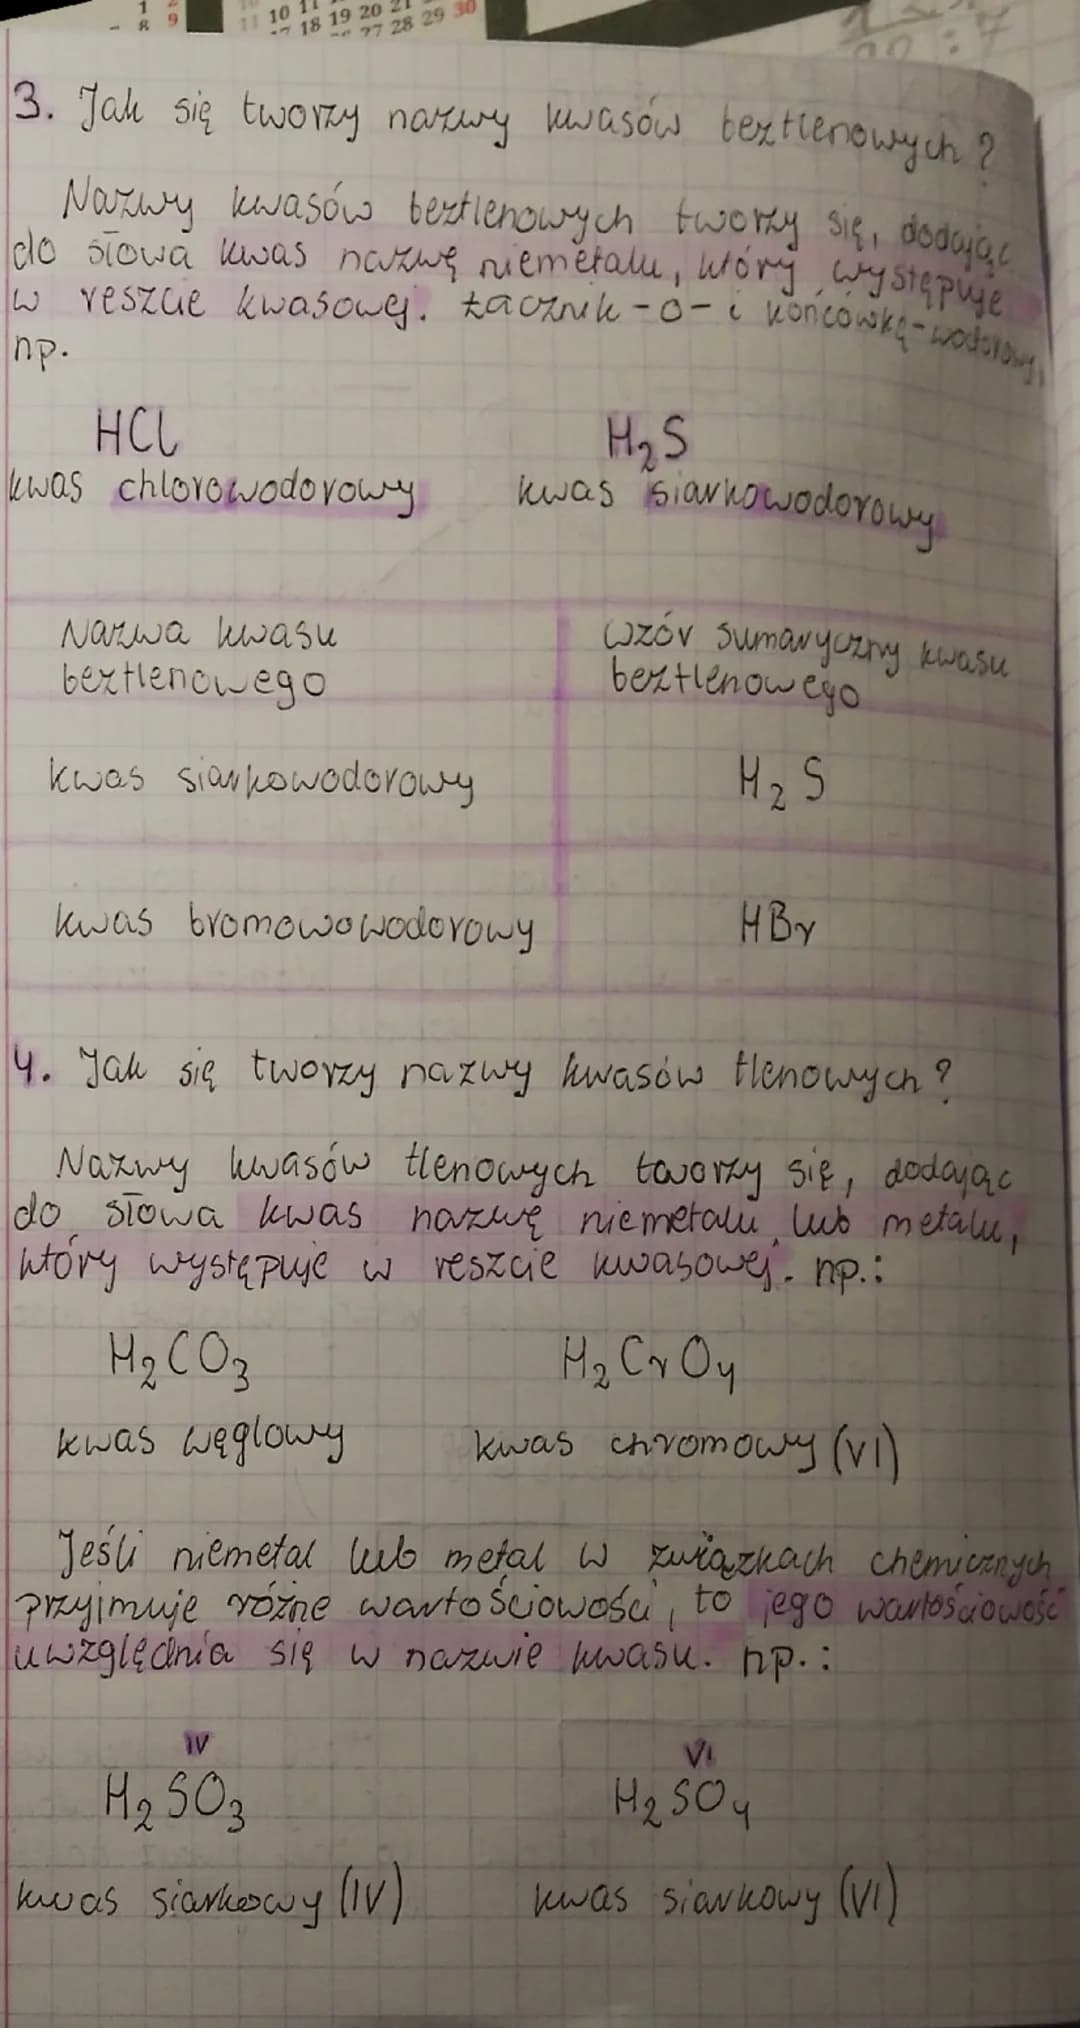 1 2
8 9
10 11
11 18 19 20 21
27 28 29 30
3. Jak się tworzy nazwy kwasów beztlenowych?
Nazwy kwasów beztlenowych tworzy się, dodając
do słowa kwas nazwę niemetalu, który występuje
w reszcie kwasowej. Łącznik -o- i końcówkę -wodorowy,
np.
HCl H₂S
kwas chlorowodorowy kwas siarkowodorowy
Nazwa kwasu wzór sumaryczny kwasu
beztlenowego beztlenowego
kwas siarkowodorowy H₂S
kwas bromowowodorowy HBr
4. Jak się tworzy nazwy kwasów tlenowych?
Nazwy kwasów tlenowych tworzy się, dodając
do słowa kwas nazwę niemetalu lub metalu,
który występuje w reszcie kwasowej. np.:
H₂CO₃ H₂CrO₄
kwas węglowy kwas chromowy (VI)
Jeśli niemetal lub metal w związkach chemicznych
przyjmuje różne wartościowości, to jego wartościowość
uwzględnia się w nazwie kwasu. np.:
IV VI
H₂SO₃ H₂SO₄
kwas siarkowy (IV) kwas siarkowy (VI)